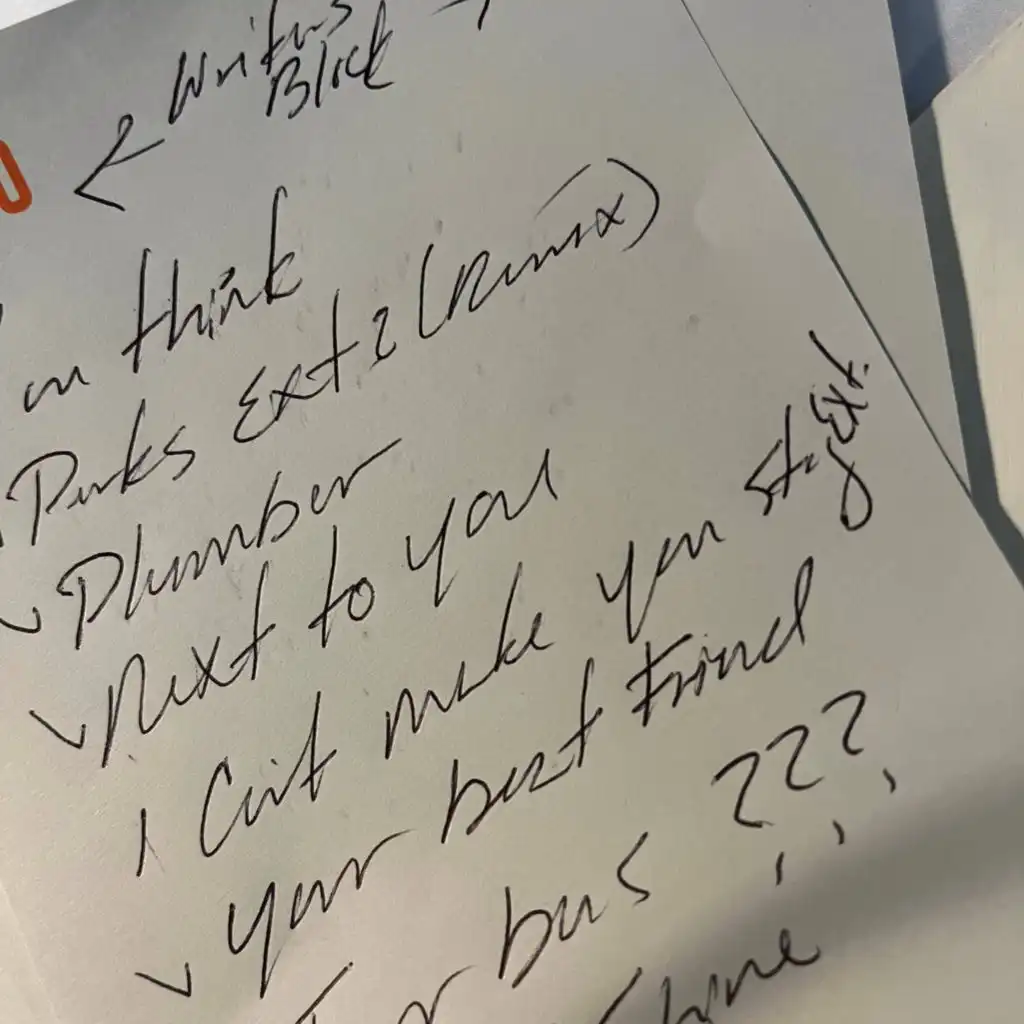 Writers
Block
think
Perks Ext 2 (Remix)
Plumber
Next to you
I Can't make you stay Ext.
your best Friend
bus ???